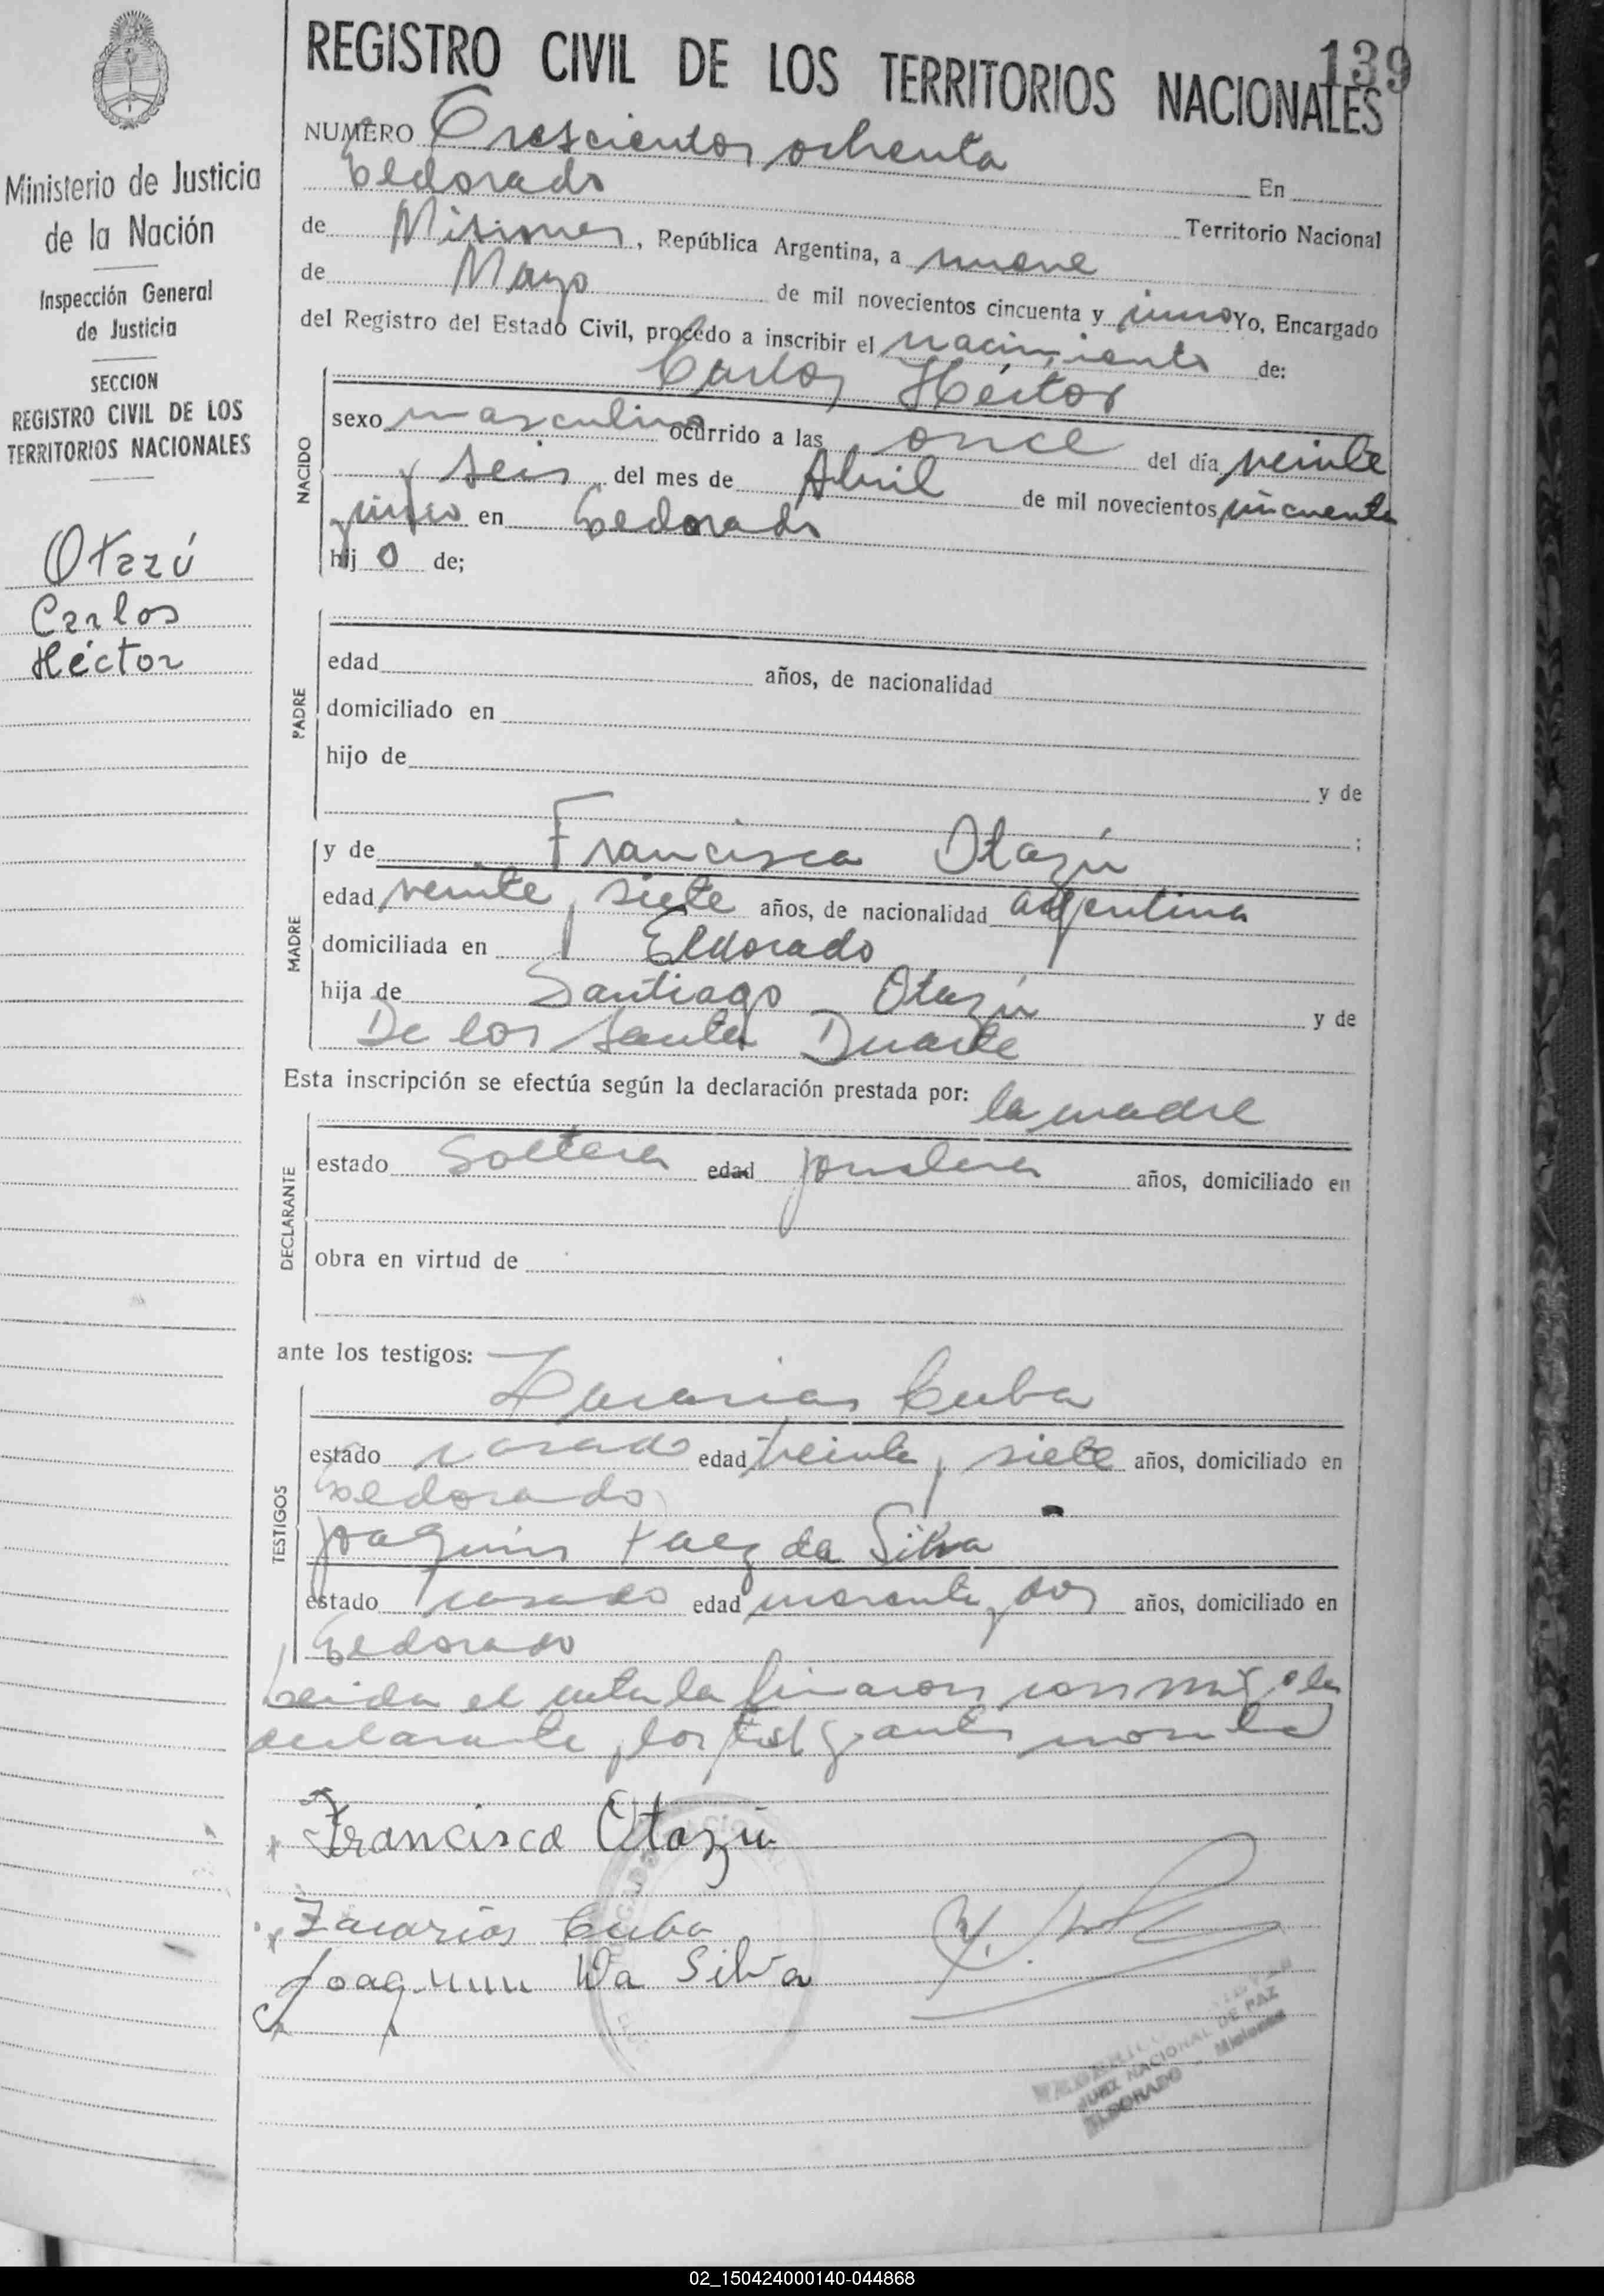 REGISTRO CIVIL DE LOS TERRITORIOS NACIONALES
139
Ministerio de Justicia
de la Nación
Inspección General
de Justicia
SECCION
REGISTRO CIVIL DE LOS
TERRITORIOS NACIONALES
Otazú
Carlos
Héctor
NUMERO Trescientos ochenta En
Eldorado Territorio Nacional
de Misiones, República Argentina, a nueve
de Mayo de mil novecientos cincuenta y uno Yo, Encargado
del Registro del Estado Civil, procedo a inscribir el nacimiento de:
Carlos Héctor
NACIDO
sexo masculino ocurrido a las once del día veinte
y seis del mes de Abril de mil novecientos cincuenta
y en Eldorado
hijo de;
PADRE
edad años, de nacionalidad
domiciliado en
hijo de y de
;
MADRE
y de Francisca Otazú
edad veinte y siete años, de nacionalidad argentina
domiciliada en Eldorado
hija de Santiago Otazú y de
De los Santos Duarte
Esta inscripción se efectúa según la declaración prestada por: la madre
DECLARANTE
estado Soltera edad jornalera años, domiciliado en
obra en virtud de
ante los testigos:
TESTIGOS
Zacarias Cuba
estado casado edad treinta y siete años, domiciliado en
Eldorado
Joaquin Paez da Silva
estado casado edad cuarenta y dos años, domiciliado en
Eldorado
Leida el acta la firmaron conmigo la
declarante y los testigos antes
Francisca Otazú
Zacarias Cuba
Joaquin Da Silva
JUEZ NACIONAL DE PAZ
ELDORADO - Misiones
02_150424000140-044868